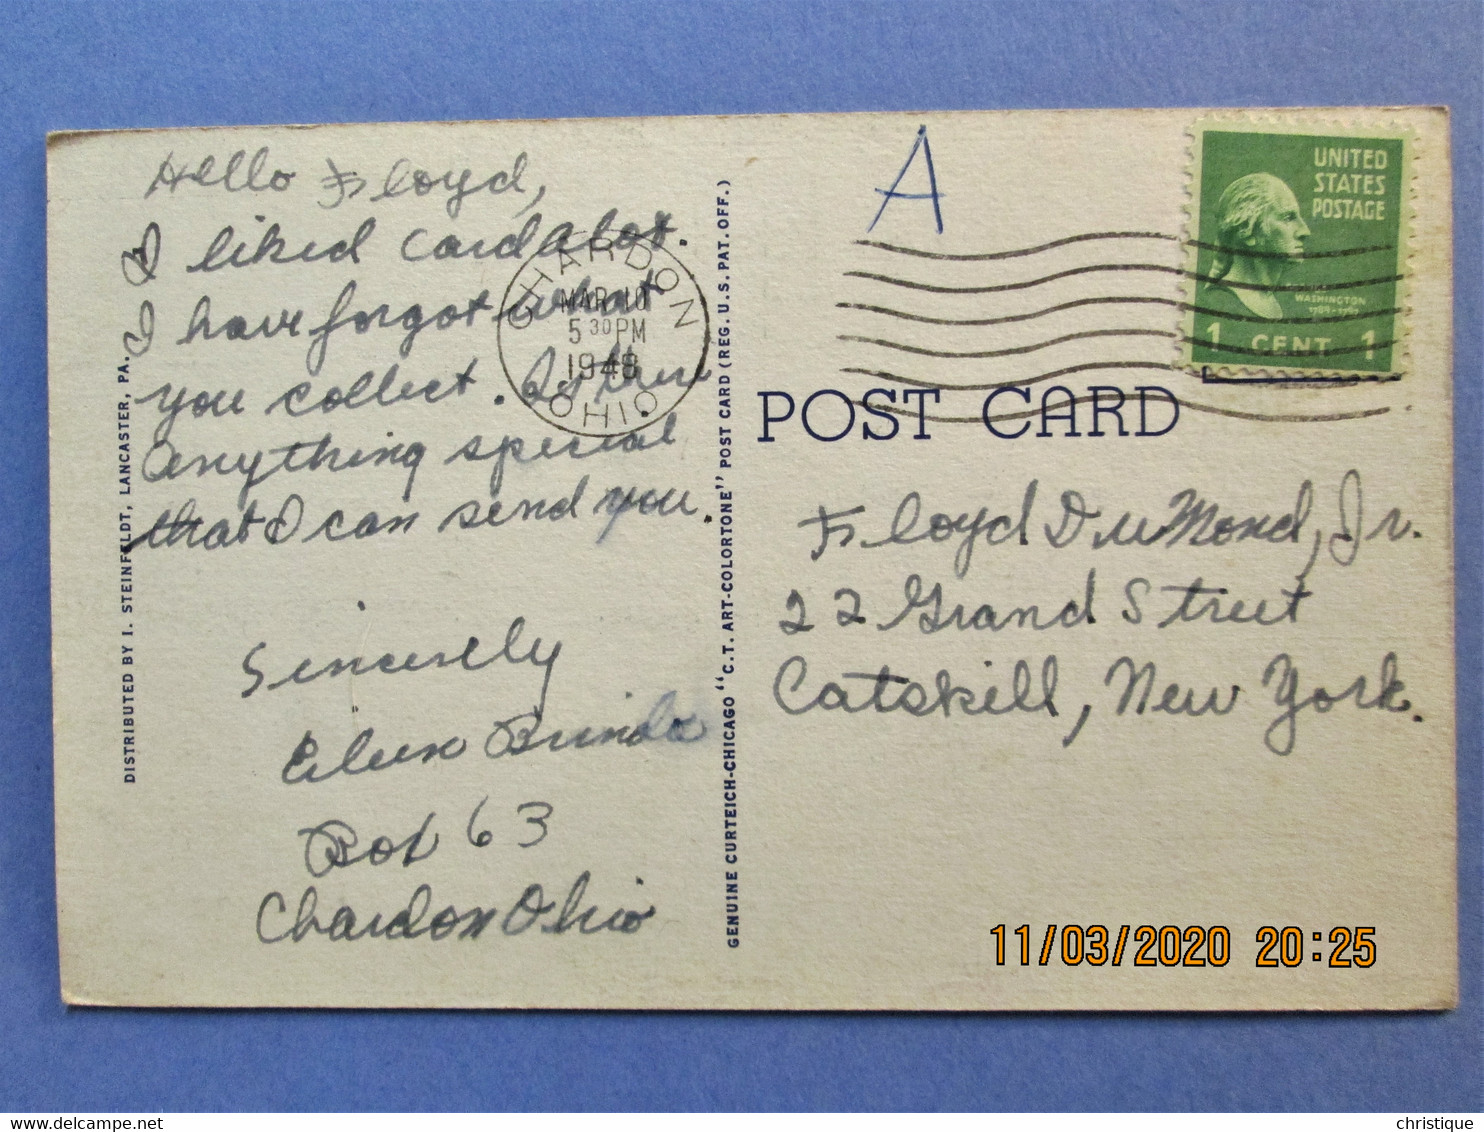 Hello Floyd,
I liked card alot.
I have forgot what
you collect. Is there
anything special
that I can send you.
Sincerely
Eileen
Box 63
Chardon Ohio
DISTRIBUTED BY I. STEINFELDT, LANCASTER, PA.
CHARDON
MAR 10
5 30 PM
1948
OHIO
GENUINE CURTEICH-CHICAGO "C.T. ART-COLORTONE" POST CARD (REG. U.S. PAT. OFF.)
A
UNITED
STATES
POSTAGE
WASHINGTON
1 CENT 1
POST CARD
Floyd DuMond, Jr.
22 Grand Street
Catskill, New York.
11/03/2020 20:25
delcampe.net
christique